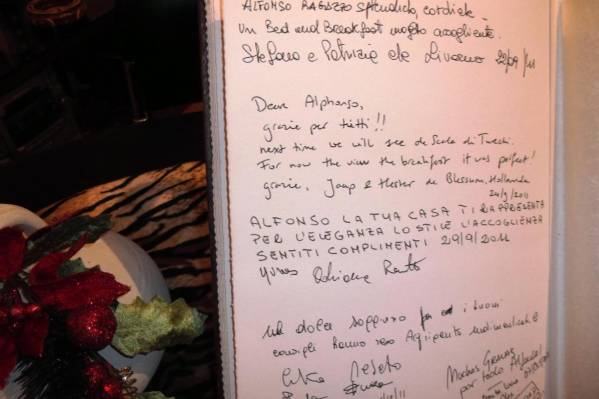 ALFONSO RAGAZZO splendido, cordiale -
Un Bed and Breakfast molto accogliente.
Stefano e Patrizia de Livorno 22/09/11
Dear Alphonso,
grazie per tutti!!
next time we will see de Scala di Turchi.
For now the view the breakfast it was perfect!
grazie, Jaap & Hester de Blessum, Hollanda
24/9/2011
ALFONSO LA TUA CASA TI RAPPRESENTA
PER L'ELEGANZA LO STILE L'ACCOGLIENZA
SENTITI COMPLIMENTI 29/9/2011
dolce soggiorno i tuoi
consigli hanno reso Agrigento indimenticabile
Muchas Gracias
por todo Alfonso!